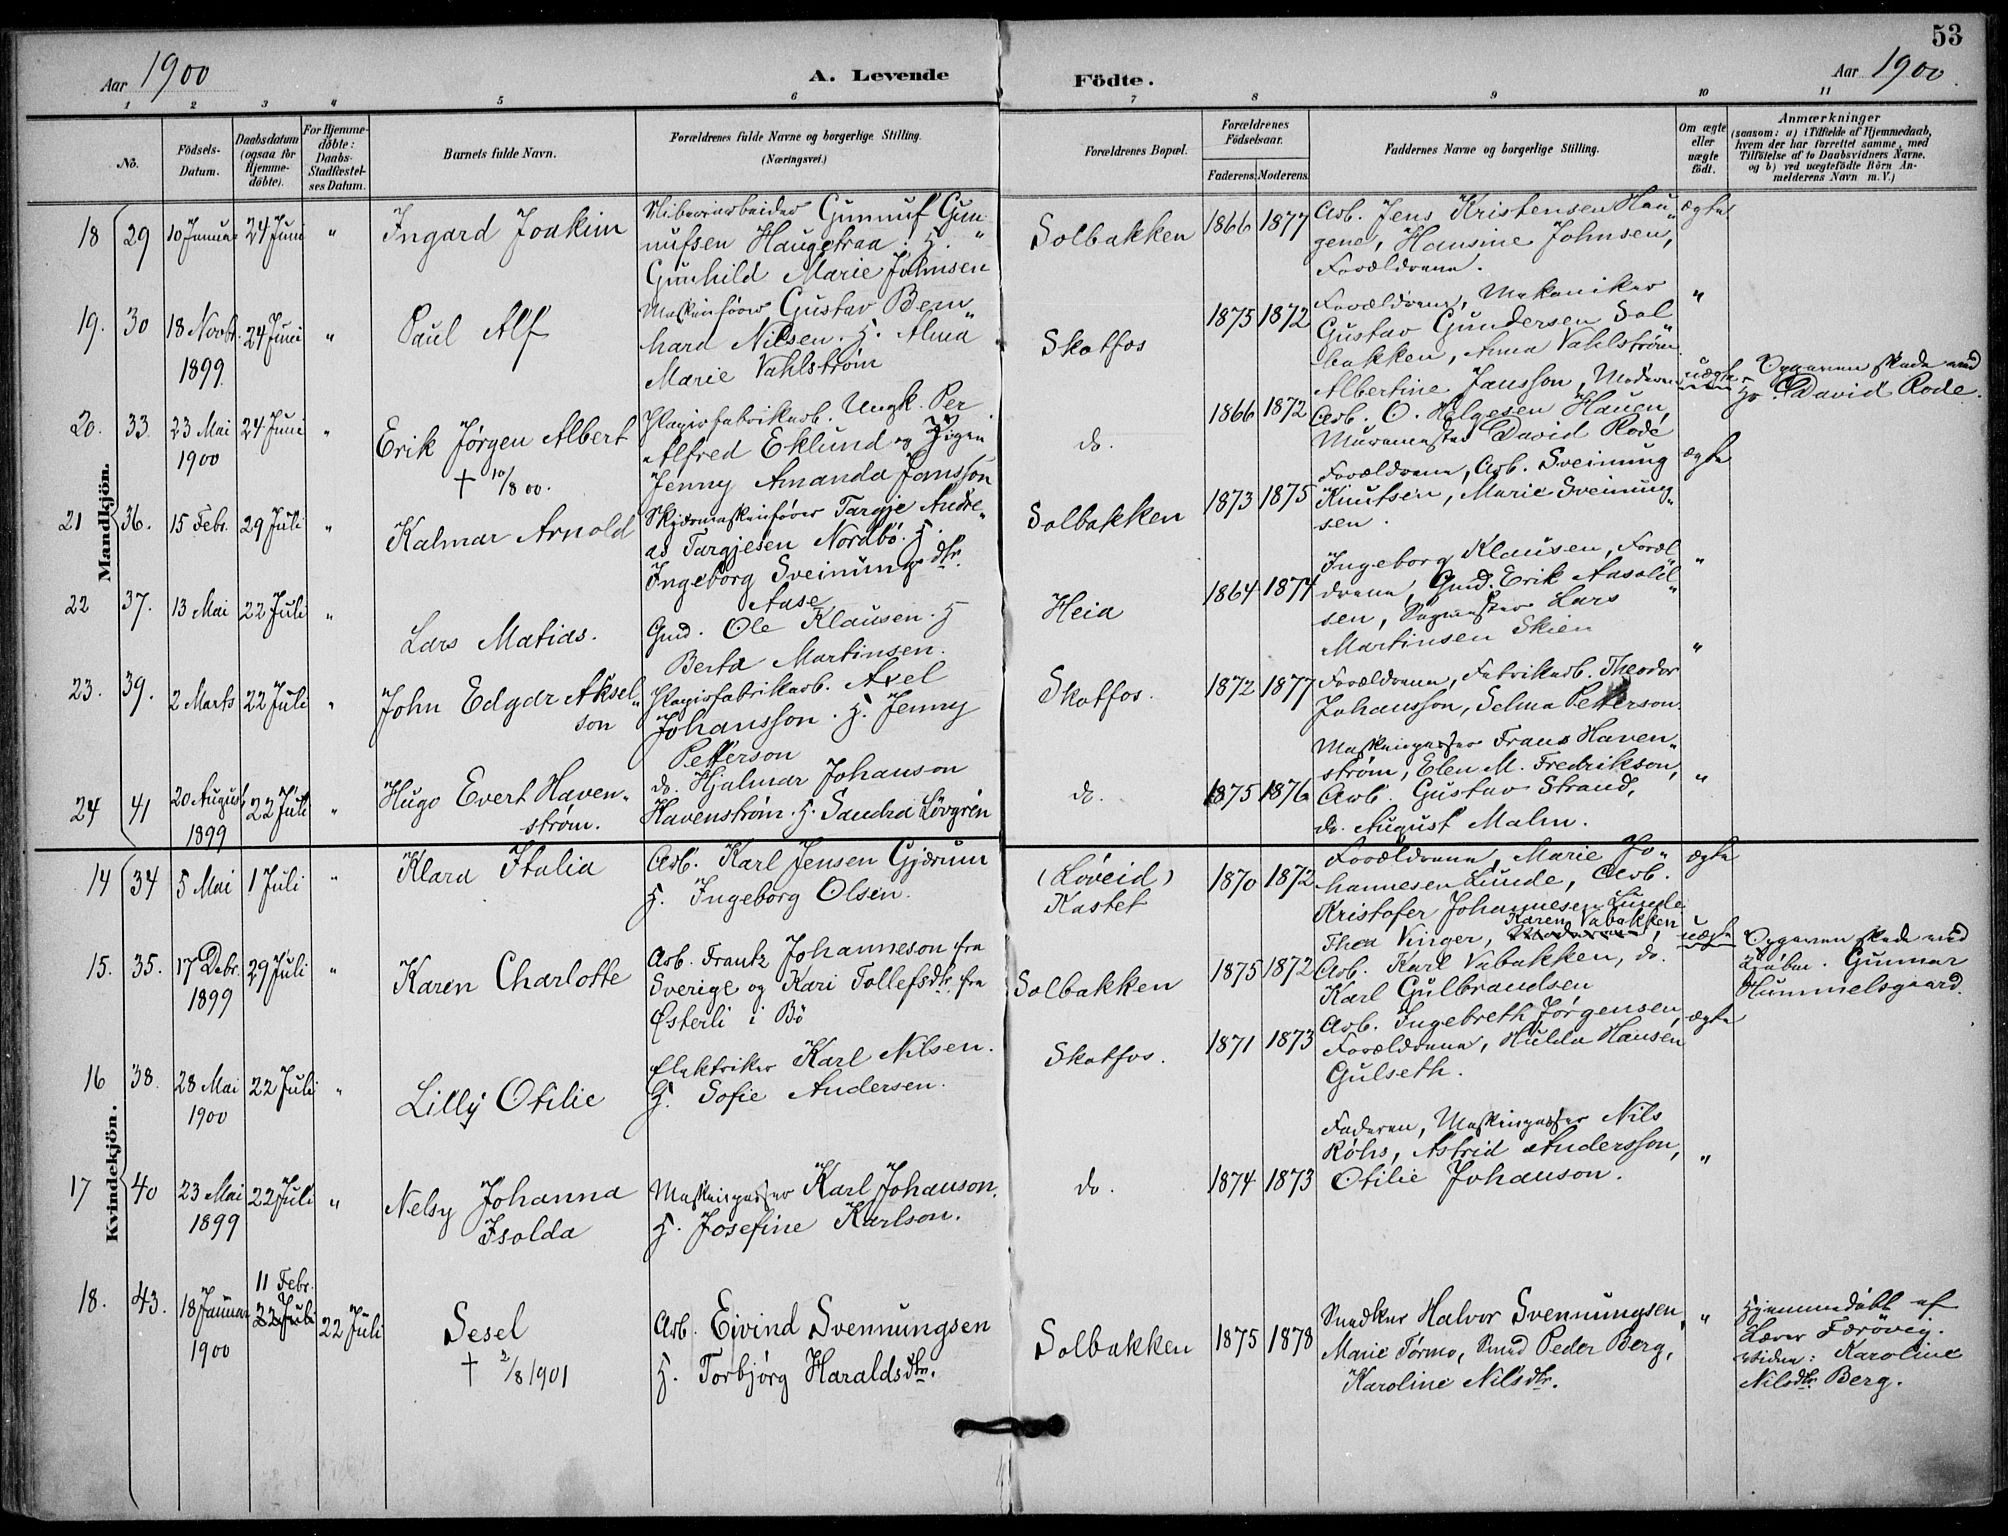 53
Aar 1900
A. Levende
Födte.
Aar 1900
1 2 3 4 5 6 7 8 9 10 11
No.
Födsels-
Datum.
Daabsdatum
(ogsaa for
Hjemme-
döbte).
For Hjemme-
döbte:
Daabs-
Stadfæstel-
ses Datum.
Barnets fulde Navn.
Forældrenes fulde Navne og borgerlige Stilling.
(Næringsvei.)
Forældrenes Bopæl.
Forældrenes
Födselsaar.
Faderens. Moderens.
Faddernes Navne og borgerlige Stilling.
Om ægte
eller
uægte
født.
Anmærkninger
(saasom: a) i Tilfælde af Hjemmedaab,
hvem der har forrettet samme, med
Tilföielse af to Daabsvidners Navne,
og b) ved uægtefödte Börn An-
melderens Navn m. V.)
Mandkjön.
18 29 10 Januar 24 Juni "
Ingard Joakim
Sliberiarbeider Gunnuf Gun-
nufsen Haugstraa. H.
Gunhild Marie Johnsen
Solbakken
1866 1877
Arb. Jens Kristensen Hau-
gene, Hansine Johnsen,
Forældrene.
ægte
19. 30 18 Novbr. 24 Juni "
1899.
Paul Alf
Maskinfører Gustav Bern-
hard Nilsen. H. Alma
Marie Vahlstrøm
Skotfos
1875 1872
Forældrene, Mekaniker
Gustav Gundersen Sol-
bakken, Anna Vahlstrøm.
"
20. 33 23 Mai 24 Juni "
1900
Erik Jørgen Albert
† 10/8 00.
Papirfabrikarb. Ungk. Per
Alfred Eklund og Pigen
Jenny Amanda Jansson
do.
1866 1872
Albertine Jansson, Moderen
Arb. O. Helgesen Hauen,
Muremester David Rode
uægte
Opgaven skede ved
Hr. David Rode.
21 36. 15 Febr. 29 Juli "
Kalmar Arnold
Targje Andre-
as Targjesen Nordbø. H.
Ingeborg Sveinungsdtr.
Aase
Solbakken
1873 1875
Forældrene, Arb. Sveinung
Knutsen, Marie Sveinung-
sen.
ægte
22 37. 13 Mai 22 Juli "
Lars Matias.
Gmd. Ole Klausen. H
Berta Martinsen.
Heia
1864 1874
Ingeborg Klausen, Foræl-
drene, Gmd. Erik Aasold-
sen, Sagmester Lars
Martinsen Skien
"
23. 39. 2 Marts 22 Juli "
John Edgar Aksel-
son
Papirfabrikarb. Axel
Johansson. H. Jenny
Petterson
Skotfos.
1872 1877
Forældrene, Fabrikarb. Theodor
Johansson, Selma Petterson.
"
24 41 20 August 22 Juli "
1899
Hugo Evert Haven-
strøm.
do. Hjalmar Johanson
Havenstrøm. H. Sandra Løvgren
do.
1875 1876
Maskinpasser Frans Haven-
strøm, Elen M. Fredrikson,
Arb. Gustav Strand,
do. August Malm.
"
Kvindekjön.
14 34 5 Mai 1 Juli "
Klara Italia
Arb. Karl Jensen Gjærum
H. Ingeborg Olsen.
(Løveid)
Kastet
1870 1872
Forældrene, Marie Jo-
hannesen Lunde, Arb.
Kristofer Johannesen Lunde
ægte
15. 35. 17 Debr. 29 Juli "
1899
Karen Charlotte
Arb. Frantz Johanneson fra
Sverige og Kari Tollefsdtr. fra
Østerli i Bø
Solbakken
1875 1872
Thea Vinger, Karen Vabakken
Moderen,
Arb. Karl Vabakken, do.
Karl Gulbrandsen
uægte
Opgaven skede ved
Gunnar
Hummelsgaard.
16 38. 28 Mai 22 Juli "
1900
Lilly Otilie
Elektriker Karl Nilsen.
H. Sofie Andersen.
Skotfos.
1871 1873
Arb. Ingebreth Jørgensen,
Forældrene, Hulda Hansen
Gulseth.
ægte
17 40 23 Mai 22 Juli "
1899
Nelsy Johanna
Isolda
Maskinpasser Karl Johanson.
H. Josefine Karlson.
do.
1874 1873
Faderen, Maskinpasser Nils
Röhs, Astrid Andersson,
Otilie Johanson.
"
18. 43. 18 Januar 11 Febr. 22 Juli 22 Juli
1900
Sesel
† 2/8 1901
Arb. Eivind Svennungsen
H. Torbjørg Haraldsdtr.
Solbakken
1875 1878
Snedker Halvor Svennungsen,
Marie Tørmo, Smed Peder Berg,
Karoline Nilsdtr.
"
Hjemmedøbt af
Lærer Færøvig.
Vidne: Karoline
Nilsdtr. Berg.